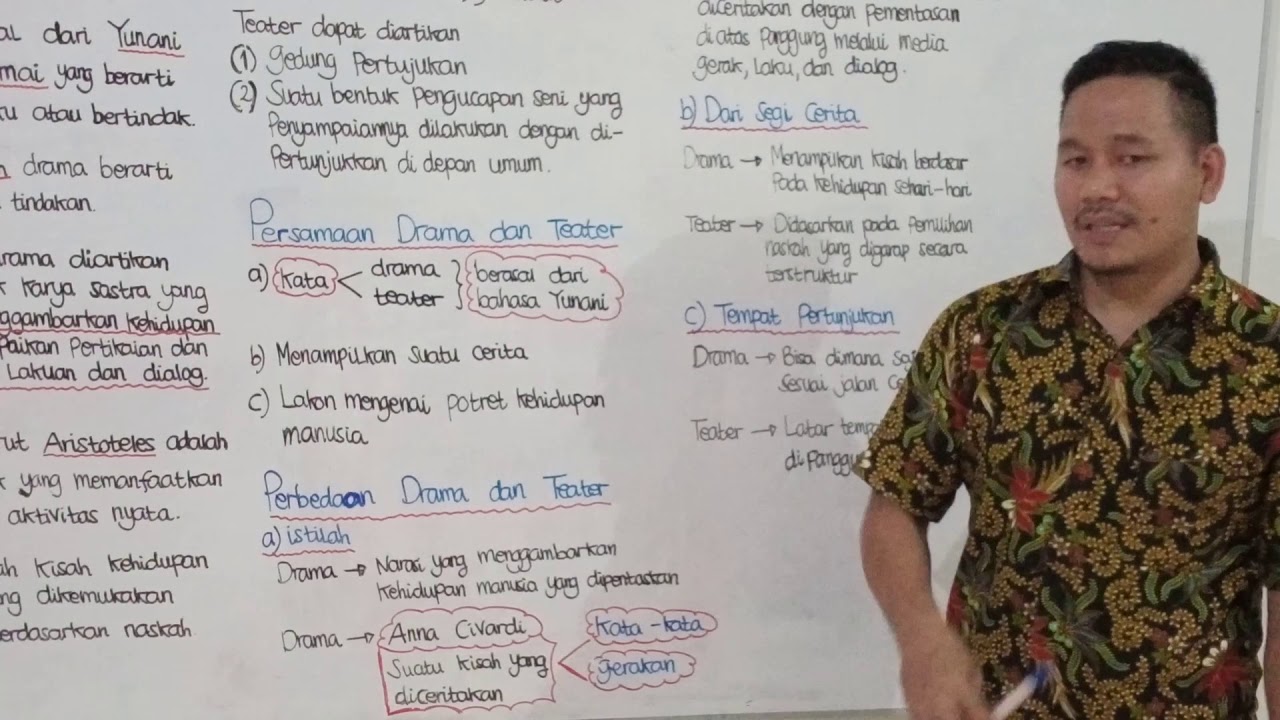 dari Yunani
yang berarti
atau bertindak.
drama berarti
tindakan.
diartikan
karya sastra yang
kehidupan
Pertikaian dan
Lakuan dan dialog.
Aristoteles adalah
yang memanfaatkan
aktivitas nyata.
kisah kehidupan
dikemukakan
naskah.
Teater dapat diartikan
(1) Gedung Pertujukan
(2) Suatu bentuk Pengucapan seni yang
Penyampaiannya dilakukan dengan di-
Pertunjukkan di depan umum.
Persamaan Drama dan Teater
a) Kata
drama
teater
berasal dari
bahasa Yunani
b) Menampilkan suatu cerita
c) Lakon mengenai potret kehidupan
manusia
Perbedaan Drama dan Teater
a) istilah
Drama → Narasi yang menggambarkan
Kehidupan manusia yang dipentaskan
Drama → Anna Civardi
Suatu kisah yang
diceritakan
Kata-kata
gerakan
diceritakan dengan pementasan
di atas panggung melalui media
gerak, laku, dan dialog.
b) Dari Segi Cerita
Drama → Menampilkan kisah berdasar
Pada kehidupan sehari-hari
Teater → Didasarkan pada pemilihan
naskah yang digarap secara
terstruktur
c) Tempat Pertunjukan
Drama → Bisa dimana
sesuai jalan
Teater → Latar
di